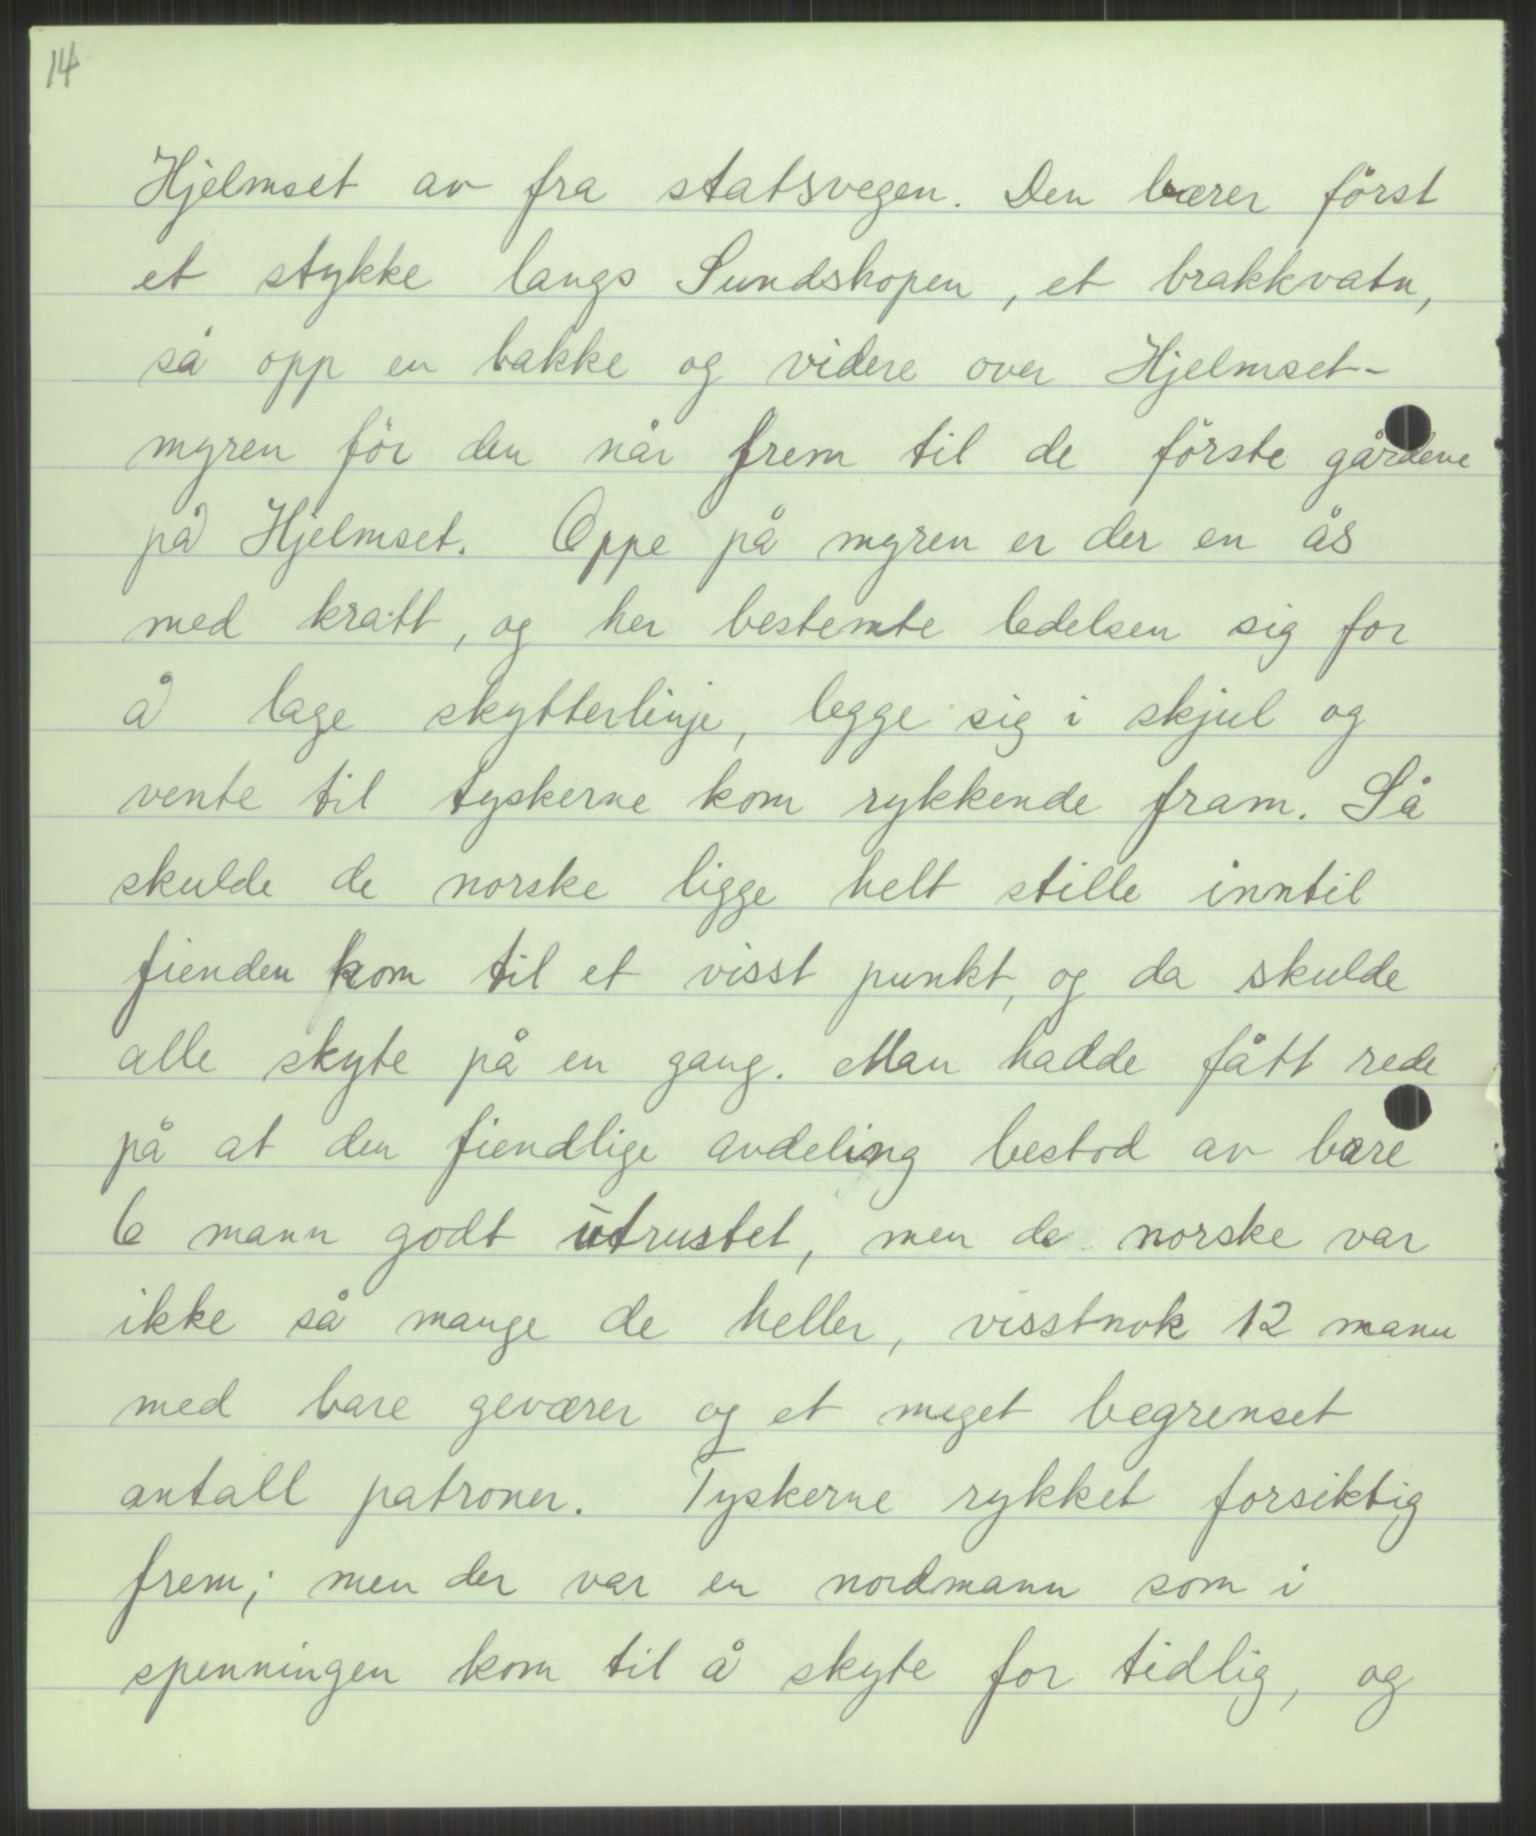 14
Hjelmset av fra statsvegen. Den bærer först
et stykke langs Sundshopen, et brakkvatn,
så opp en bakke og videre over Hjelmset-
myren för den når frem til de förste gårdene
på Hjelmset. Oppe på myren er der en ås
med kratt, og her bestemte ledelsen sig for
å lage skytterlinje, legge sig i skjul og
vente til tyskerne kom rykkende fram. Så
skulde de norske ligge helt stille inntil
fienden kom til et visst punkt, og da skulde
alle skyte på en gang. Man hadde fått rede
på at den fiendlige avdeling bestod av bare
6 mann godt utrustet, men de norske var
ikke så mange de heller, visstnok 12 mann
med bare geværer og et meget begrenset
antall patroner. Tyskerne rykket forsiktig
frem; men der var en nordmann som i
spenningen kom til å skyte for tidlig, og